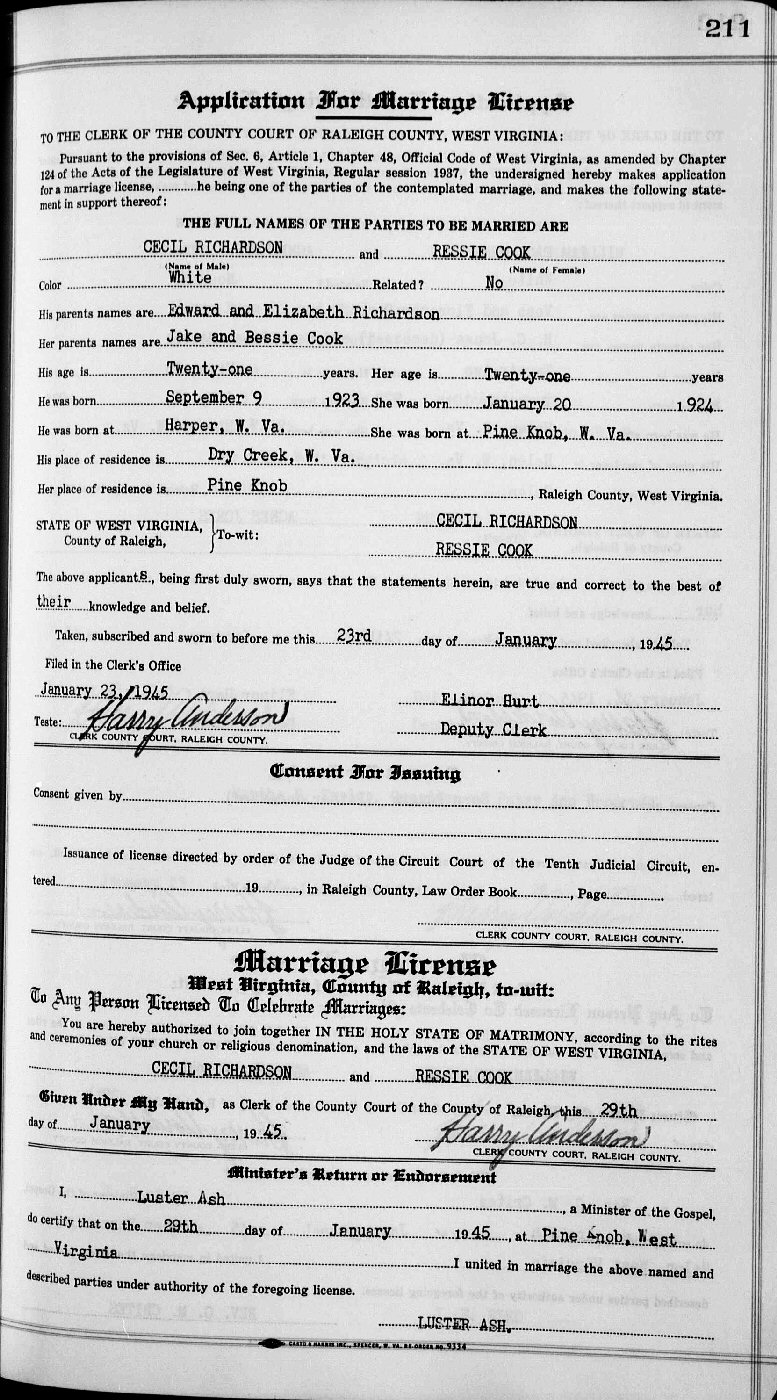 211
Application For Marriage License
TO THE CLERK OF THE COUNTY COURT OF RALEIGH COUNTY, WEST VIRGINIA:
Pursuant to the provisions of Sec. 6, Article 1, Chapter 48, Official Code of West Virginia, as amended by Chapter
124 of the Acts of the Legislature of West Virginia, Regular session 1937, the undersigned hereby makes application
for a marriage license, ............he being one of the parties of the contemplated marriage, and makes the following state-
ment in support thereof:
THE FULL NAMES OF THE PARTIES TO BE MARRIED ARE
CECIL RICHARDSON and RESSIE COOK
(Name of Male) (Name of Female)
Color White Related? No
His parents names are Edward and Elizabeth Richardson
Her parents names are Jake and Bessie Cook
His age is Twenty-one years. Her age is Twenty-one years
He was born September 9 1923 She was born January 20 1924
He was born at Harper, W. Va. She was born at Pine Knob, W. Va.
His place of residence is Dry Creek, W. Va.
Her place of residence is Pine Knob, Raleigh County, West Virginia.
STATE OF WEST VIRGINIA, CECIL RICHARDSON
County of Raleigh, } To-wit:
RESSIE COOK
The above applicants., being first duly sworn, says that the statements herein, are true and correct to the best of
their knowledge and belief.
Taken, subscribed and sworn to before me this 23rd day of January, 1945
Filed in the Clerk's Office
January 23, 1945 Elinor Hurt
Teste: Harry Anderson Deputy Clerk
CLERK COUNTY COURT, RALEIGH COUNTY.
Consent For Issuing
Consent given by
Issuance of license directed by order of the Judge of the Circuit Court of the Tenth Judicial Circuit, en-
tered 19, in Raleigh County, Law Order Book, Page
CLERK COUNTY COURT, RALEIGH COUNTY.
Marriage License
West Virginia, County of Raleigh, to-wit:
To Any Person Licensed To Celebrate Marriages:
You are hereby authorized to join together IN THE HOLY STATE OF MATRIMONY, according to the rites
and ceremonies of your church or religious denomination, and the laws of the STATE OF WEST VIRGINIA,
CECIL RICHARDSON and RESSIE COOK
Given Under My Hand, as Clerk of the County Court of the County of Raleigh, this 29th
day of January, 1945. Harry Anderson
CLERK COUNTY COURT, RALEIGH COUNTY.
Minister's Return or Endorsement
I, Luster Ash, a Minister of the Gospel,
do certify that on the 29th day of January 1945, at Pine Knob, West
Virginia I united in marriage the above named and
described parties under authority of the foregoing license.
LUSTER ASH.
CASTO & HARRIS INC., SPENCER, W. VA. RE-ORDER NO. 9334